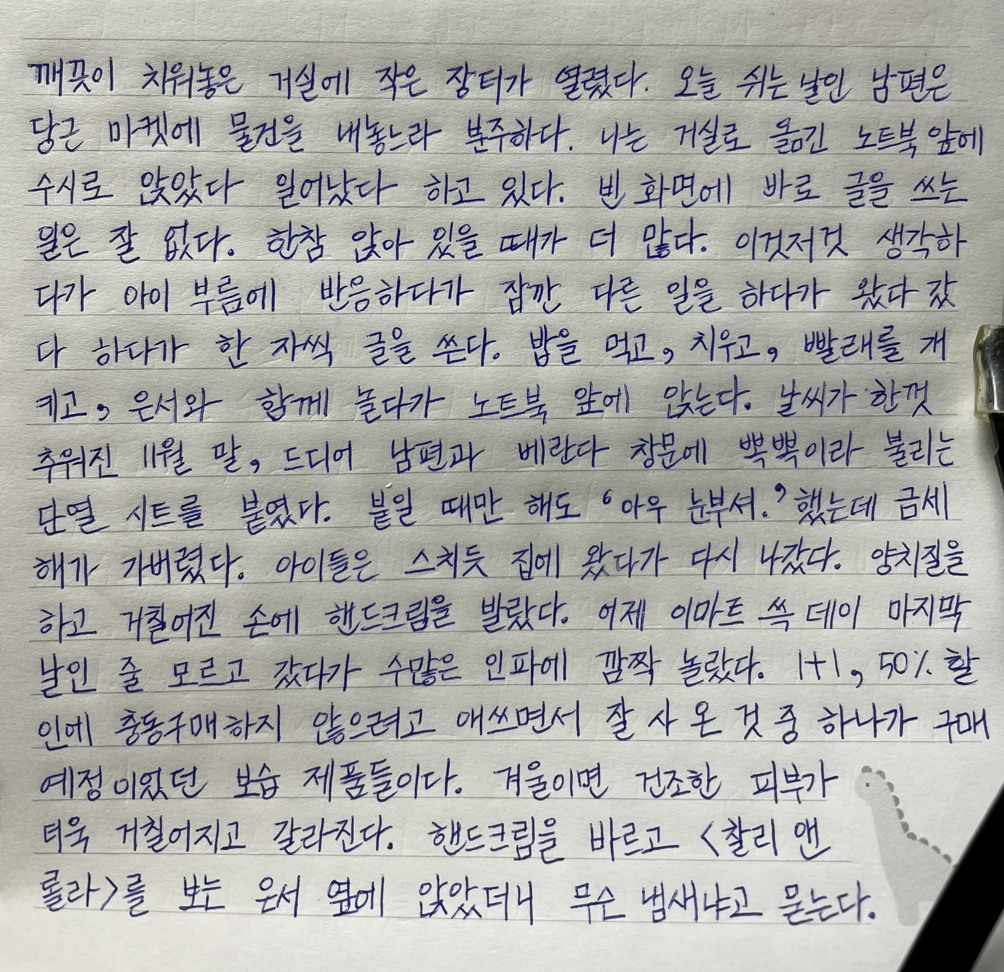 깨끗이 치워놓은 거실에 작은 장터가 열렸다. 오늘 쉬는 날인 남편은
당근 마켓에 물건을 내놓느라 분주하다. 나는 거실로 옮긴 노트북 앞에
수시로 앉았다 일어났다 하고 있다. 빈 화면에 바로 글을 쓰는
일은 잘 없다. 한참 앉아 있을 때가 더 많다. 이것저것 생각하
다가 아이 부름에 반응하다가 잠깐 다른 일을 하다가 왔다 갔
다 하다가 한 자씩 글을 쓴다. 밥을 먹고, 치우고, 빨래를 개
키고, 은서와 함께 놀다가 노트북 앞에 앉는다. 날씨가 한껏
추워진 11월 말, 드디어 남편과 베란다 창문에 뽁뽁이라 불리는
단열 시트를 붙였다. 붙일 때만 해도 '아우 눈부셔.' 했는데 금세
해가 가버렸다. 아이들은 스치듯 집에 왔다가 다시 나갔다. 양치질을
하고 거칠어진 손에 핸드크림을 발랐다. 어제 이마트 쓱 데이 마지막
날인 줄 모르고 갔다가 수많은 인파에 깜짝 놀랐다. 1+1, 50% 할
인에 충동구매하지 않으려고 애쓰면서 잘 사 온 것 중 하나가 구매
예정이었던 보습 제품들이다. 겨울이면 건조한 피부가
더욱 거칠어지고 갈라진다. 핸드크림을 바르고 <찰리 앤
롤라>를 보는 은서 옆에 앉았더니 무슨 냄새냐고 묻는다.